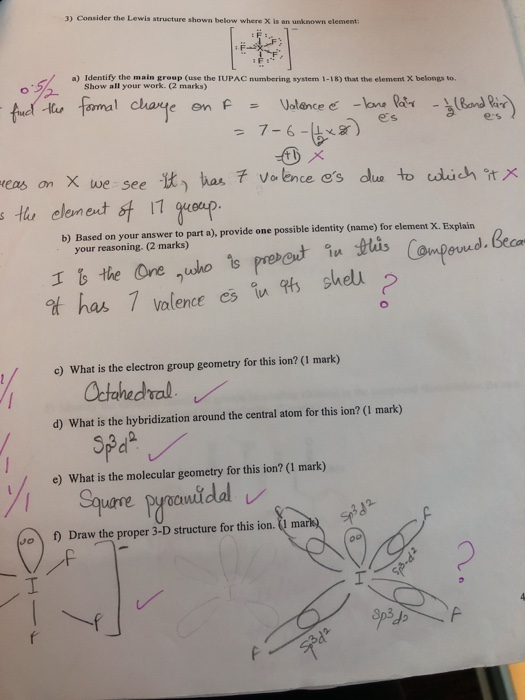 3) Consider the Lewis structure shown below where X is an unknown element:
:F:
:F X F:
:F:
a) Identify the main group (use the IUPAC numbering system 1-18) that the element X belongs to.
Show all your work. (2 marks)
0.5/2
find the formal charge on F = Valence e - lone Pair e's - 1/2 (Bond Pair e's)
= 7 - 6 - (1/2 x 8)
= +1 X
on X we see it, has 7 valence e's due to which it X
the element of 17 group.
b) Based on your answer to part a), provide one possible identity (name) for element X. Explain
your reasoning. (2 marks)
I is the One, who is present in this Compound. Beca
it has 7 valence e's in its shell ?
c) What is the electron group geometry for this ion? (1 mark)
Octahedral. ✓
1/1
d) What is the hybridization around the central atom for this ion? (1 mark)
Sp³d² ✓
e) What is the molecular geometry for this ion? (1 mark)
1/1
Square pyramidal ✓
f) Draw the proper 3-D structure for this ion. (1 mark)
F
I
F
F
✓
sp³d²
F
sp³d²
I
sp³d²
F
sp³d²
F
?
4